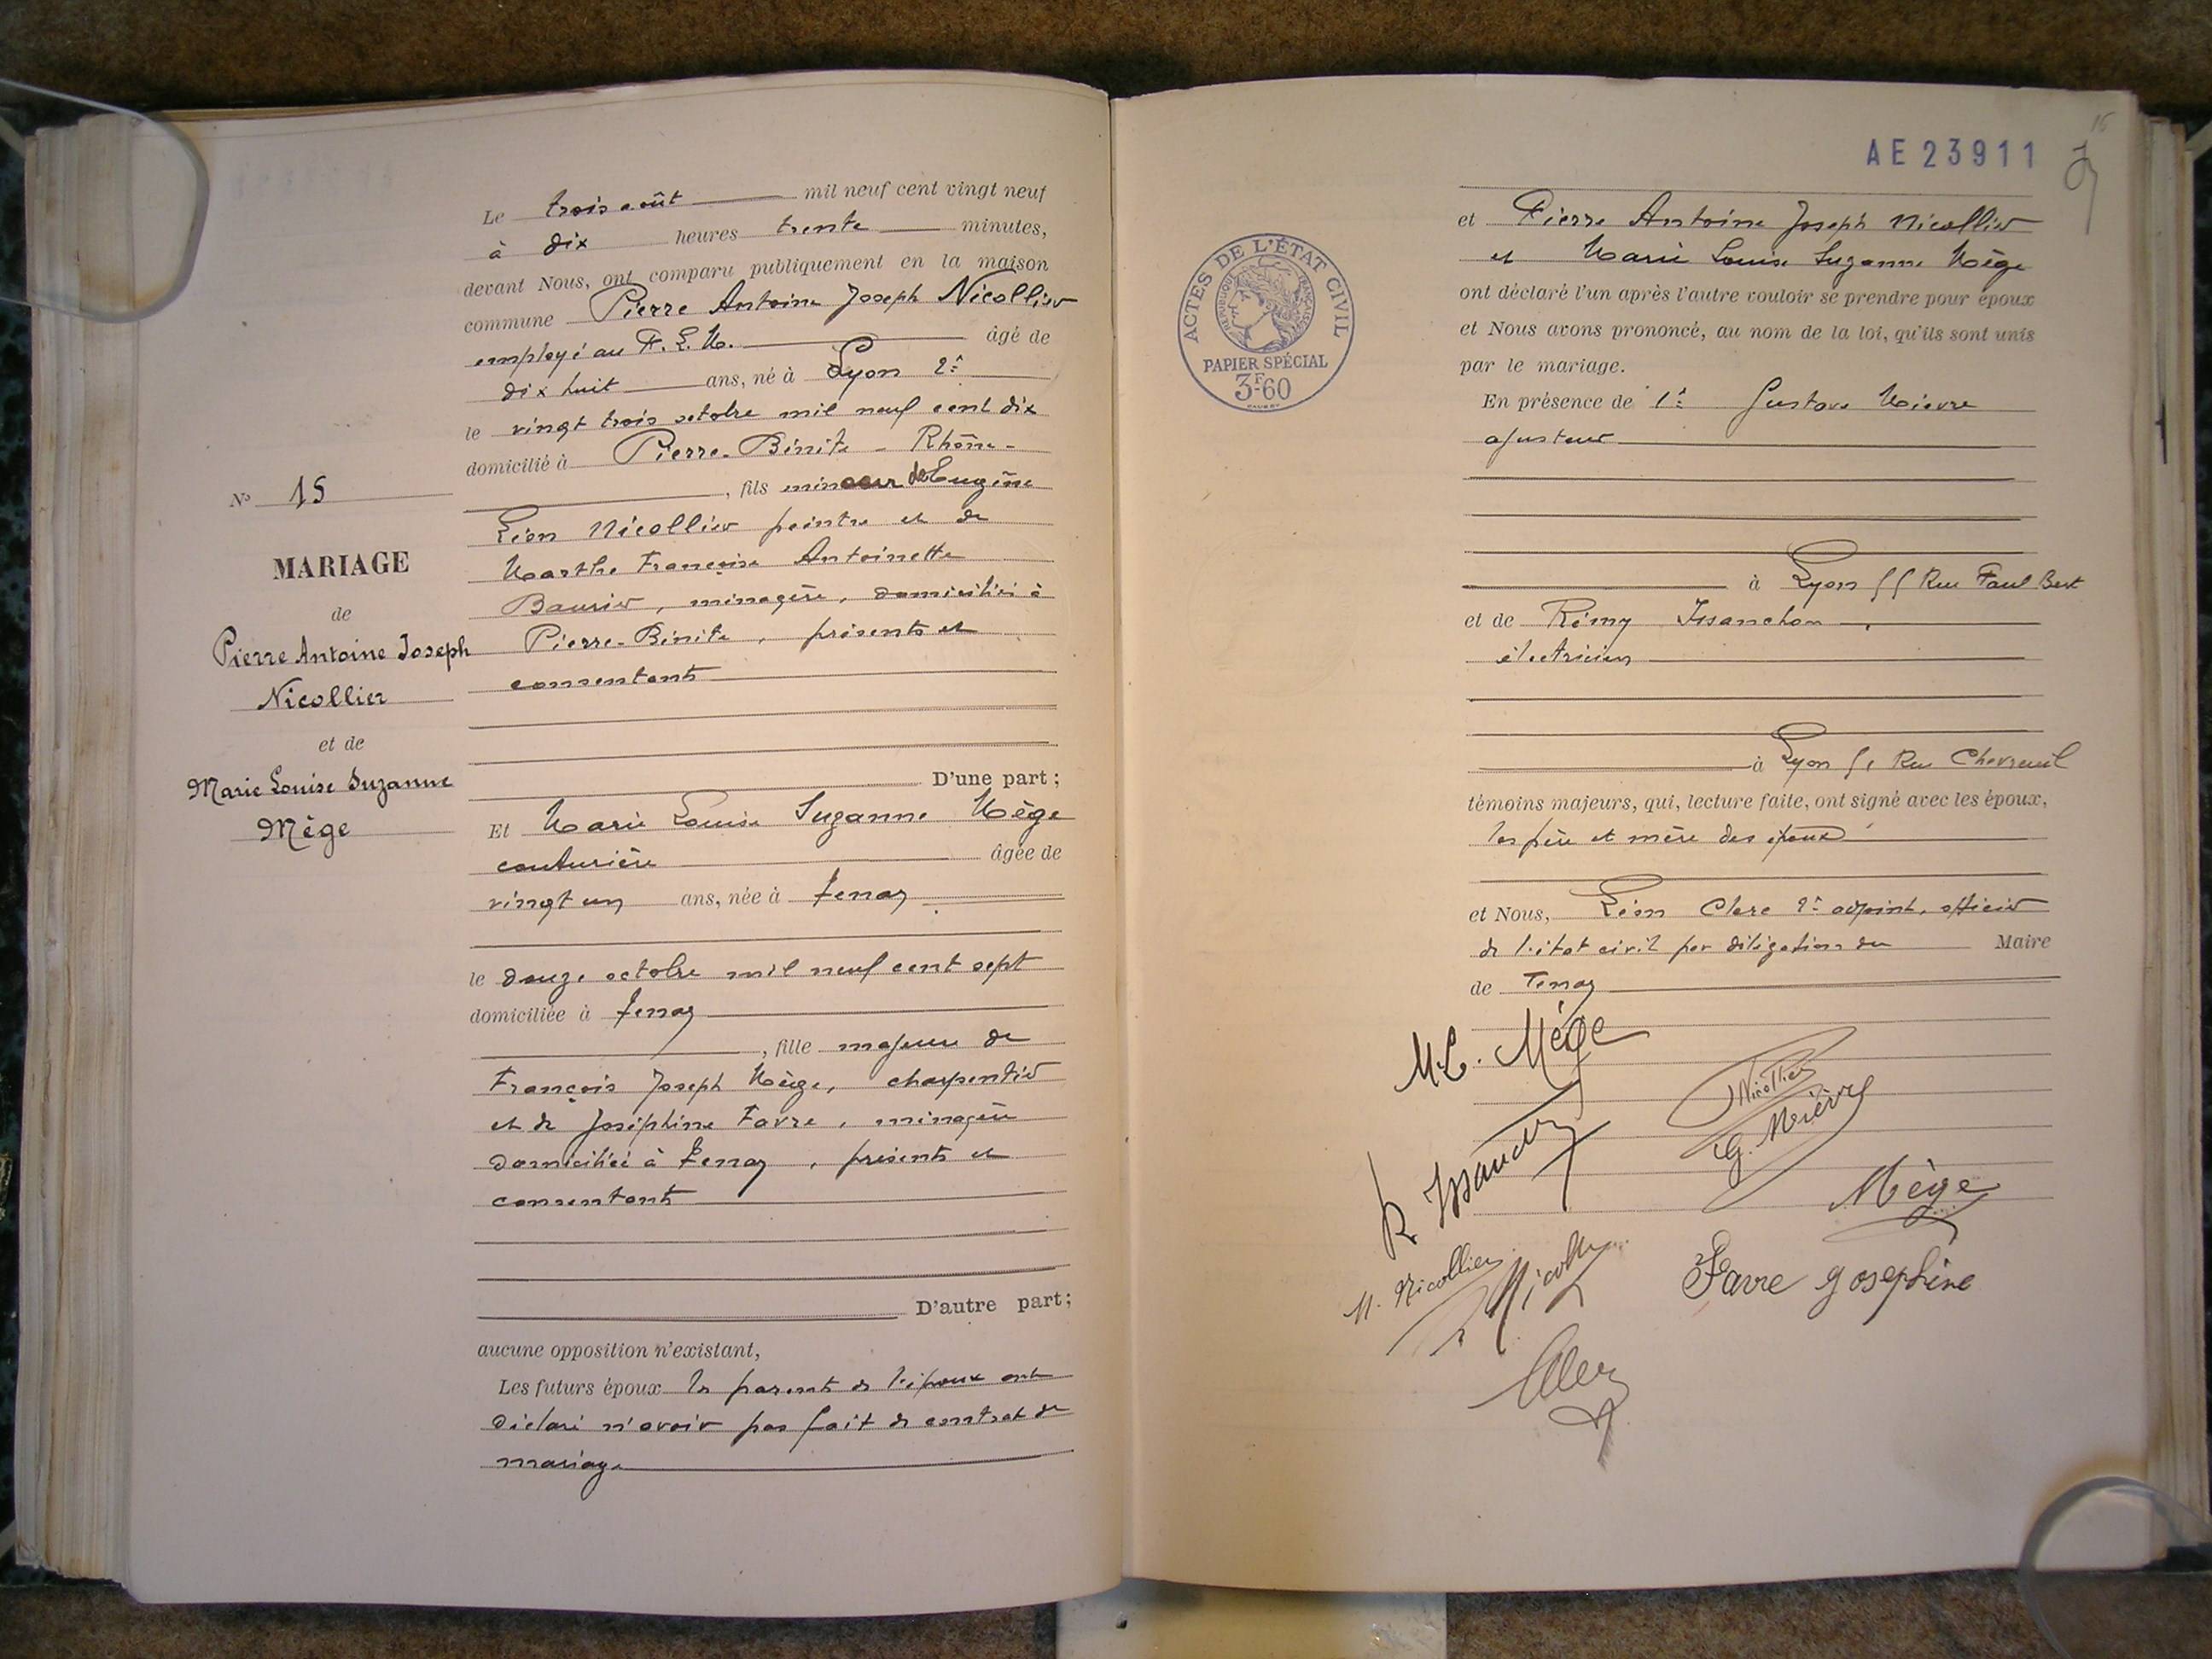 Le trois août mil neuf cent vingt neuf
à dix heures trente minutes,
devant Nous, ont comparu publiquement en la maison
commune Pierre Antoine Joseph Nicollier
employé au P. L. M. âgé de
dix huit ans, né à Lyon 2e
le vingt trois octobre mil neuf cent dix
domicilié à Pierre-Bénite - Rhône -
, fils mineur de Eugène
Léon Nicollier peintre et de
Marthe Françoise Antoinette
ménagère, domiciliés à
Pierre-Bénite, présents et
consentants
D'une part;
N° 15
MARIAGE
de
Pierre Antoine Joseph
Nicollier
et de
Marie Louise Suzanne
Mège
Et Marie Louise Suzanne Mège
couturière âgée de
vingt un ans, née à Tenay
le douze octobre mil neuf cent sept
domiciliée à Tenay
, fille majeure de
François Joseph Mège, charpentier
et de Joséphine Favre, ménagère
domiciliés à Tenay, présents et
consentants
D'autre part;
aucune opposition n'existant,
Les futurs époux les parents de l'époux ont
déclaré n'avoir pas fait de contrat de
mariage
AE 23911
15
ACTES DE L'ÉTAT CIVIL
RÉPUBLIQUE FRANÇAISE
PAPIER SPÉCIAL
3F60
et Pierre Antoine Joseph Nicollier
et Marie Louise Suzanne Mège
ont déclaré l'un après l'autre vouloir se prendre pour époux
et Nous avons prononcé, au nom de la loi, qu'ils sont unis
par le mariage.
En présence de 1° Gustave Mièvre
ajusteur
à Lyon 55 Rue Paul Bert
et de Rémy Issanchou
électricien
à Lyon 51 Rue Chevreul
témoins majeurs, qui, lecture faite, ont signé avec les époux,
les père et mère des époux
et Nous, Léon Clerc 2e adjoint, officier
de l'état civil par délégation du Maire
de Tenay
M.L. Mège
Nicollier
G. Mièvre
R Issanchou
Mège
M. Nicollier
Nicollier
Favre Josephine
Clerc